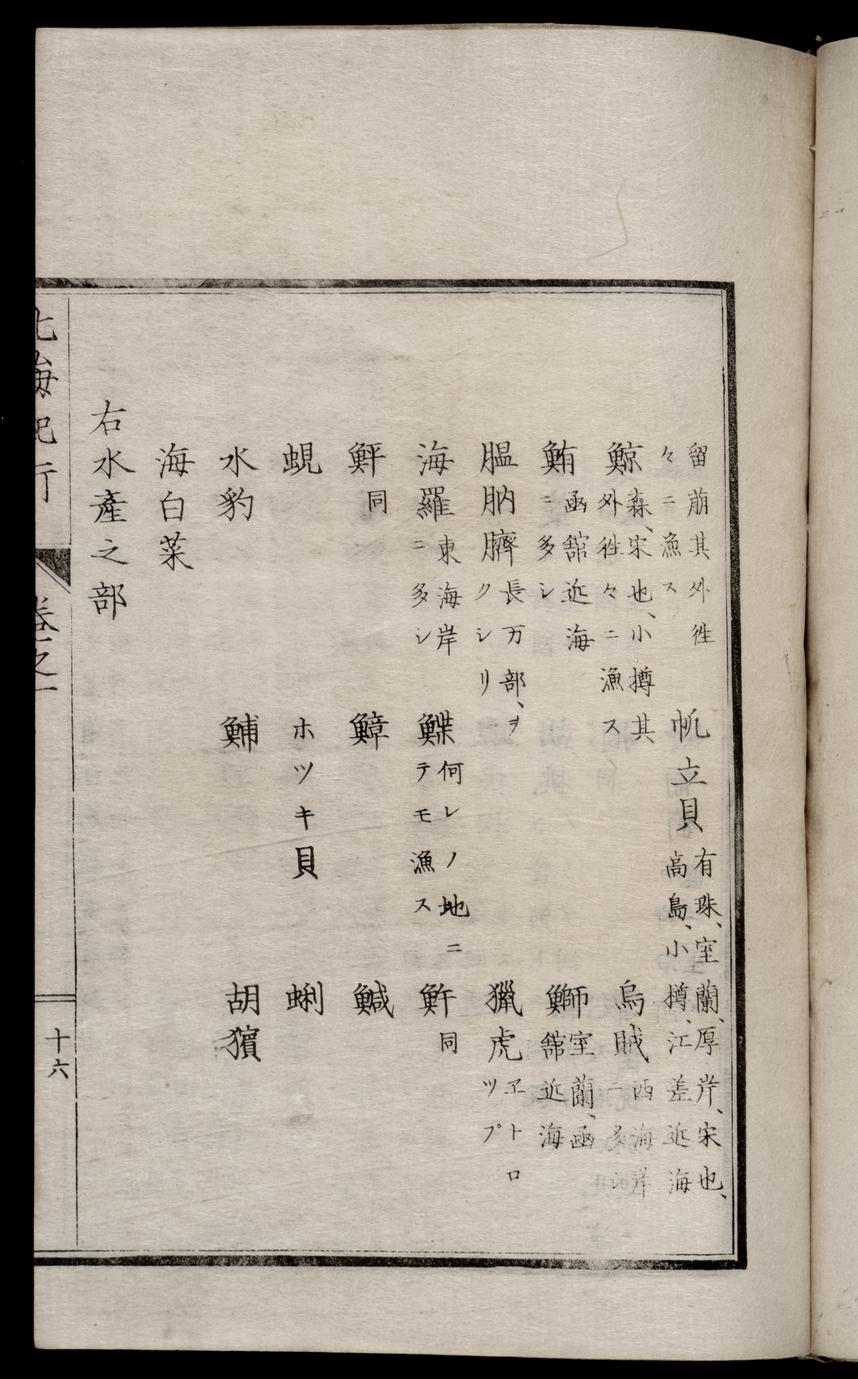 留萠其外徃
々ニ漁ス
帆立貝 有珠、室蘭、厚岸、宗也、
高島、小樽、江差近海
鯨 森、宗也、小樽其
外徃々ニ漁ス
烏賊 西海岸
ニ多シ
鮪 函舘近海
ニ多シ
鰤 室蘭、函
舘近海
膃肭臍 長万部、ヲ
クシリ
猟虎 ヱトロ
ツプ
海羅 東海岸
ニ多シ
鰈 何レノ地ニ
テモ漁ス
魸 同
鮃 同
鱆
鰔
蜆
ホツキ貝
蜊
水豹
鯆
胡獱
海白菜
右水產之部
北海紀行
卷之一
十六